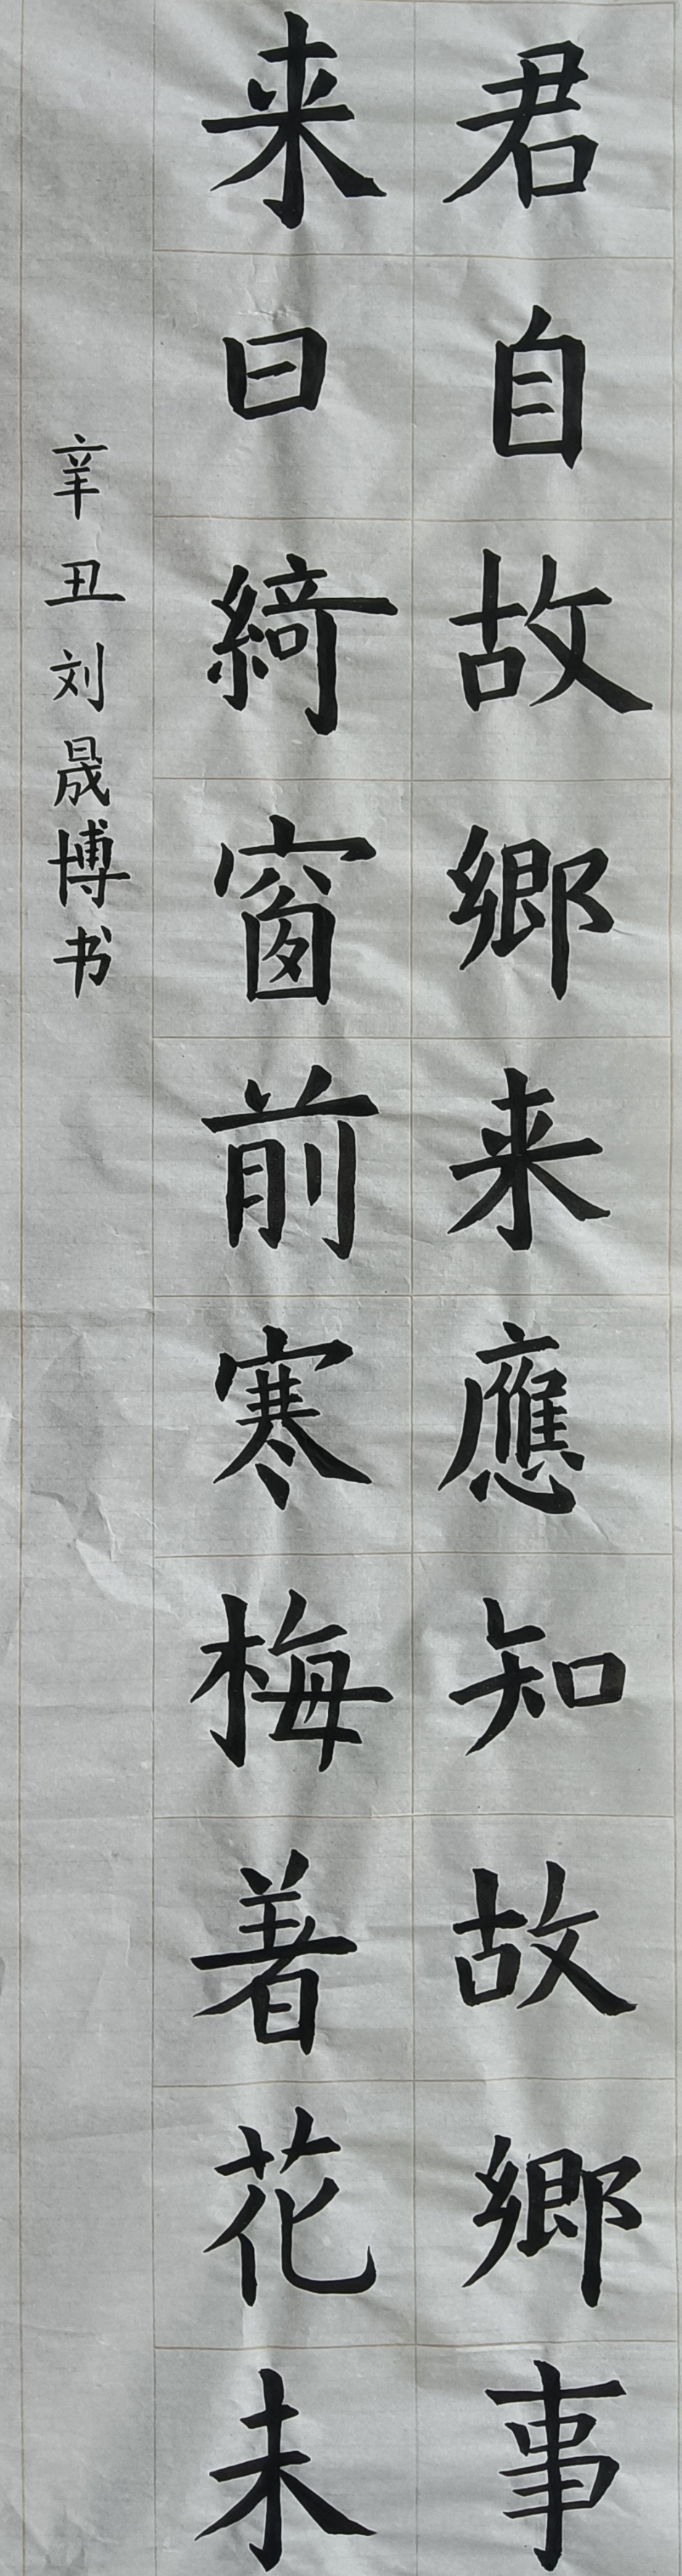 君自故鄉来應知故鄉事
来曰綺窗前寒梅著花未
辛丑刘晟博书